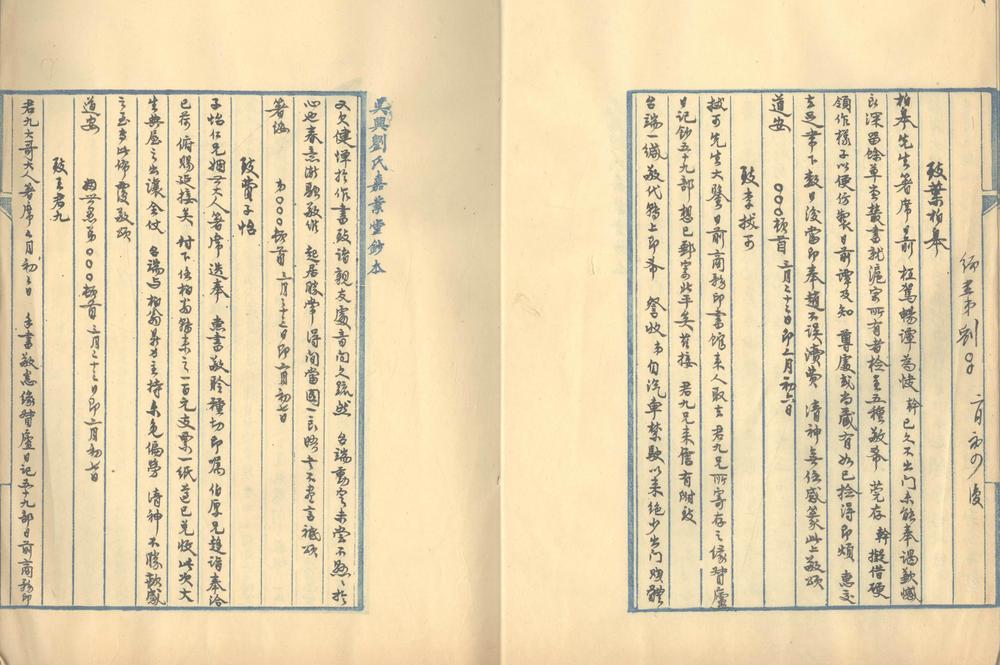 致葉柏皋
柏皋先生箸席日前 枉駕暢譚為快幹已久不出門未能奉謁歉憾
良深留餘草堂叢書就滬寓所有者檢呈五種敬希 莞存 幹擬借硬
領作樣子以便仿製日前譚及知 尊處或尚藏有如已撿得即煩 惠交
去足帶下數日後當即奉趙不誤瀆費 清神無任感篆此上敬頌
道安 〇〇頓首 三月二十二日即二月初六日
致李拔可
拔可先生大鑒日前商務印書館來人取去 君九兄所寄存之緣督廬
日記鈔五十九部想已郵寄北平矣茲接 君九兄來信有附致
台端一緘敬代轉上即希 詧收弟自汽車禁駛以來絕少出門賤體
吳興劉氏嘉業堂鈔本
又欠健憚於作書致諸親友處音問久疏然 台端動定未嘗不懸懸於
心也春意漸融敬維 起居勝常 得間當圖一良晤書不盡言祗頌
箸綏 弟〇〇〇頓首 三月二十三日即二月初七日
致費子怡
子怡仁兄姻世大人箸席迭奉 惠書敬聆種切即屬 伯原兄趨詣奉洽
已荷 俯賜延接矣 付下伍柏翁轉來之一百元支票一紙茲已兌收此次大
生典屋之出讓全仗 台端與柏翁鼎力主持未免偏勞 清神不勝歉感
之至專此佈覆敬頌
道安 姻世愚弟〇〇〇頓首 三月二十三日即二月初七日
致王君九
君九大哥大人箸席二月初三日 手書敬悉緣督廬日記五十九部日前商務印